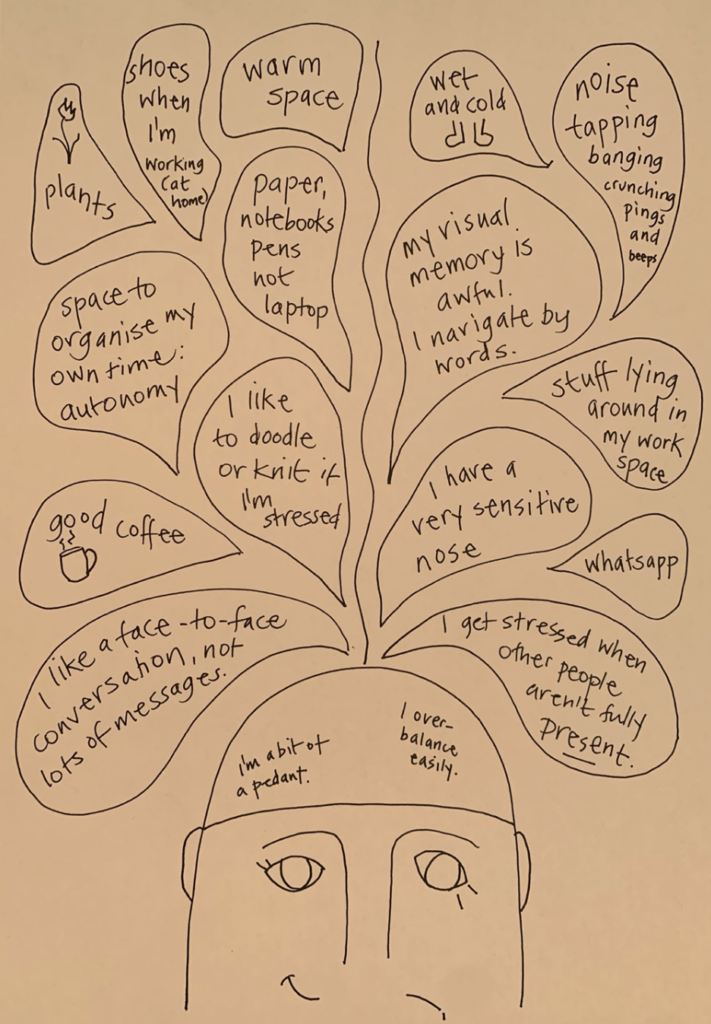 plants
shoes
when
I'm
working
(at
home)
warm
space
paper,
notebooks
pens
not
laptop
space to
organise my
own time:
autonomy
I like
to doodle
or knit if
I'm
stressed
good
coffee
I like a face-to-face
conversation, not
lots of messages.
wet
and cold
noise
tapping
banging
crunching
pings
and
beeps
my visual
memory is
awful.
I navigate by
words.
stuff lying
around in
my work
space
I have a
very sensitive
nose
whatsapp
I get stressed when
other people
aren't fully
present.
I'm a bit of
a pedant.
I over-
balance
easily.